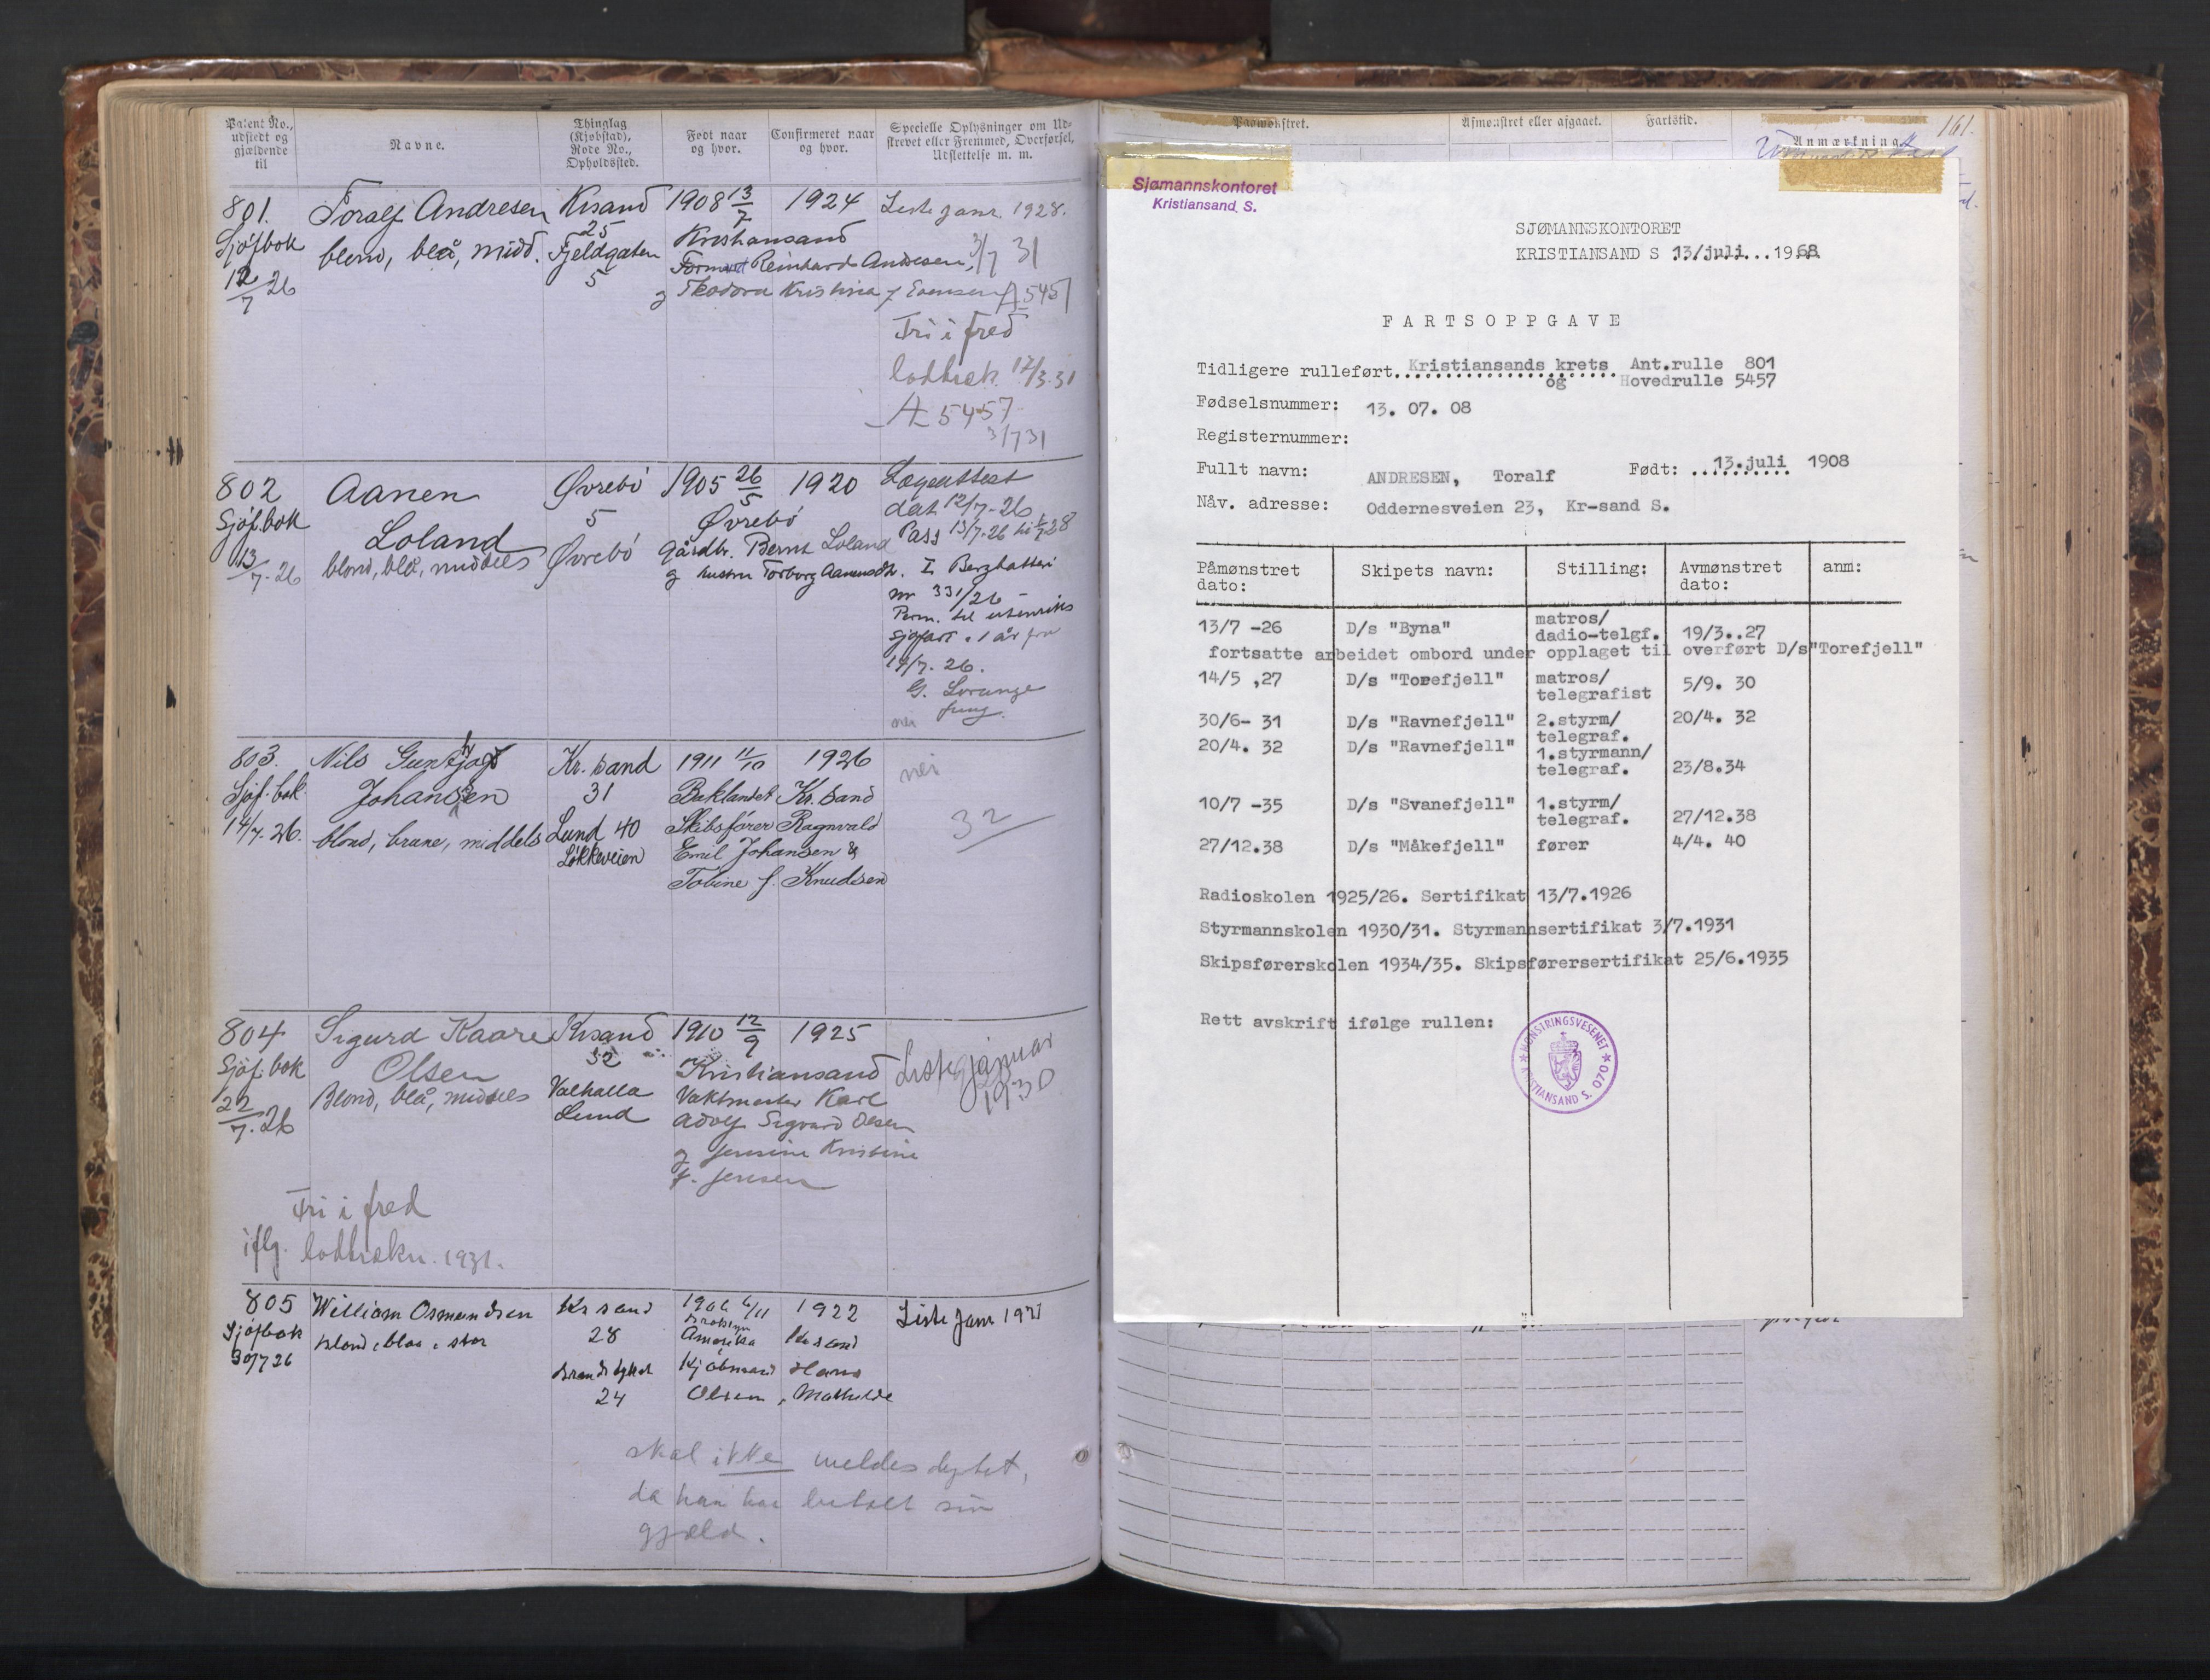 Patent No., udstedt og gjældende til
Navne.
Thinglag (Kjøbstad), Rode No., Opholdssted.
Født naar og hvor.
Confirmeret naar og hvor.
Specielle Oplysninger om Udstrevet eller Fremmed, Overførsel, Udslettelse m. m.
801.
Sjøfbok
12/7 26
Toralf Andresen
blond, blå, midd.
Krsand
25
Fjeldgaten
5
1908 13/7
1924
Kristiansand
Reinhard Andresen,
og Teodora Kristina f Evensen
Liste janr. 1928.
3/7 31
A 5457
Fri i fred
lodtræk. 17/3.31
A 5457
3/7 31
802
Sjøf.bok
13/7. 26
Aanen
Loland
blond, blå, middels
Øvrebö
5
Øvrebö
1905 26/5
1920
Øvrebö
gårdbr. Bernt Loland
og hustru Torborg Aanensdtr.
Lægeattest
dat 12/7-26
Pass 13/7-26 til
I Bergbatteri
nr 331/26 -
Perm. til utenriks
sjøfart i 1 år fra
17/7. 26.
nei
803.
Sjøf. bok.
14/7. 26.
Nils
Johansen
blond, brune, middels
Kr. sand
31
Lund 40
Løkkeveien
1911 11/10
1926
Baklandet Kr. sand
Skibsfører Ragnvald
Emil Johansen &
Tobine f. Knudsen
nei
32
804
Sjøf. bok
22/7. 26
Sigurd Kaare
Olsen
Blond, blå, middels
Krsand
32
Valhalla
Lund
1910 12/9
1925
Kristiansand
Vaktmester Karl
Adolf Sigvard Olsen
og Jensine Kristine
f. Jensen
Liste januar
1930
Fri i fred
iflg. lodtrækn. 1931.
805
Sjøfbok
30/7 26
William Osmundsen
blond, blaa, stor
Krsand
28
24
6/11
1922
Brooklyn
Amerika Krsand
Kjøbmand Hans
Olsen, Mathilde
Liste Janr
skal ikke meldes dygtet,
da han har betalt sin
gjæld.
Paamønstret.
Afmønstret eller afgaaet.
Fartstid.
Anmærkning
161.
Sjømannskontoret
Kristiansand S.
SJØMANNSKONTORET
KRISTIANSAND S 13/juli...1968
FARTSOPPGAVE
Tidligere rulleført Kristiansands krets Ant.rulle 801
og Hovedrulle 5457
Fødselsnummer: 13. 07. 08
Registernummer:
Fullt navn: ANDRESEN, Toralf Født: 13.juli 1908
Nåv. adresse: Oddernesveien 23, Kr-sand S.
Påmønstret dato: Skipets navn: Stilling: Avmønstret dato: anm:
13/7 -26 D/s "Byna" matros/ dadio-telgf. 19/3..27
fortsatte arbeidet ombord under opplaget til overført D/s"Torefjell"
14/5 ,27 D/s "Torefjell" matros/ telegrafist 5/9. 30
30/6- 31 D/s "Ravnefjell" 2.styrm/ telegraf. 20/4. 32
20/4. 32 D/s "Ravnefjell" 1.styrmann/ telegraf. 23/8.34
10/7 -35 D/s "Svanefjell" 1.styrm/ telegraf. 27/12.38
27/12.38 D/s "Måkefjell" fører 4/4. 40
Radioskolen 1925/26. Sertifikat 13/7.1926
Styrmannskolen 1930/31. Styrmannsertifikat 3/7.1931
Skipsførerskolen 1934/35. Skipsførersertifikat 25/6.1935
Rett avskrift ifølge rullen:
MØNSTRINGSVESENET
KRISTIANSAND S. 070